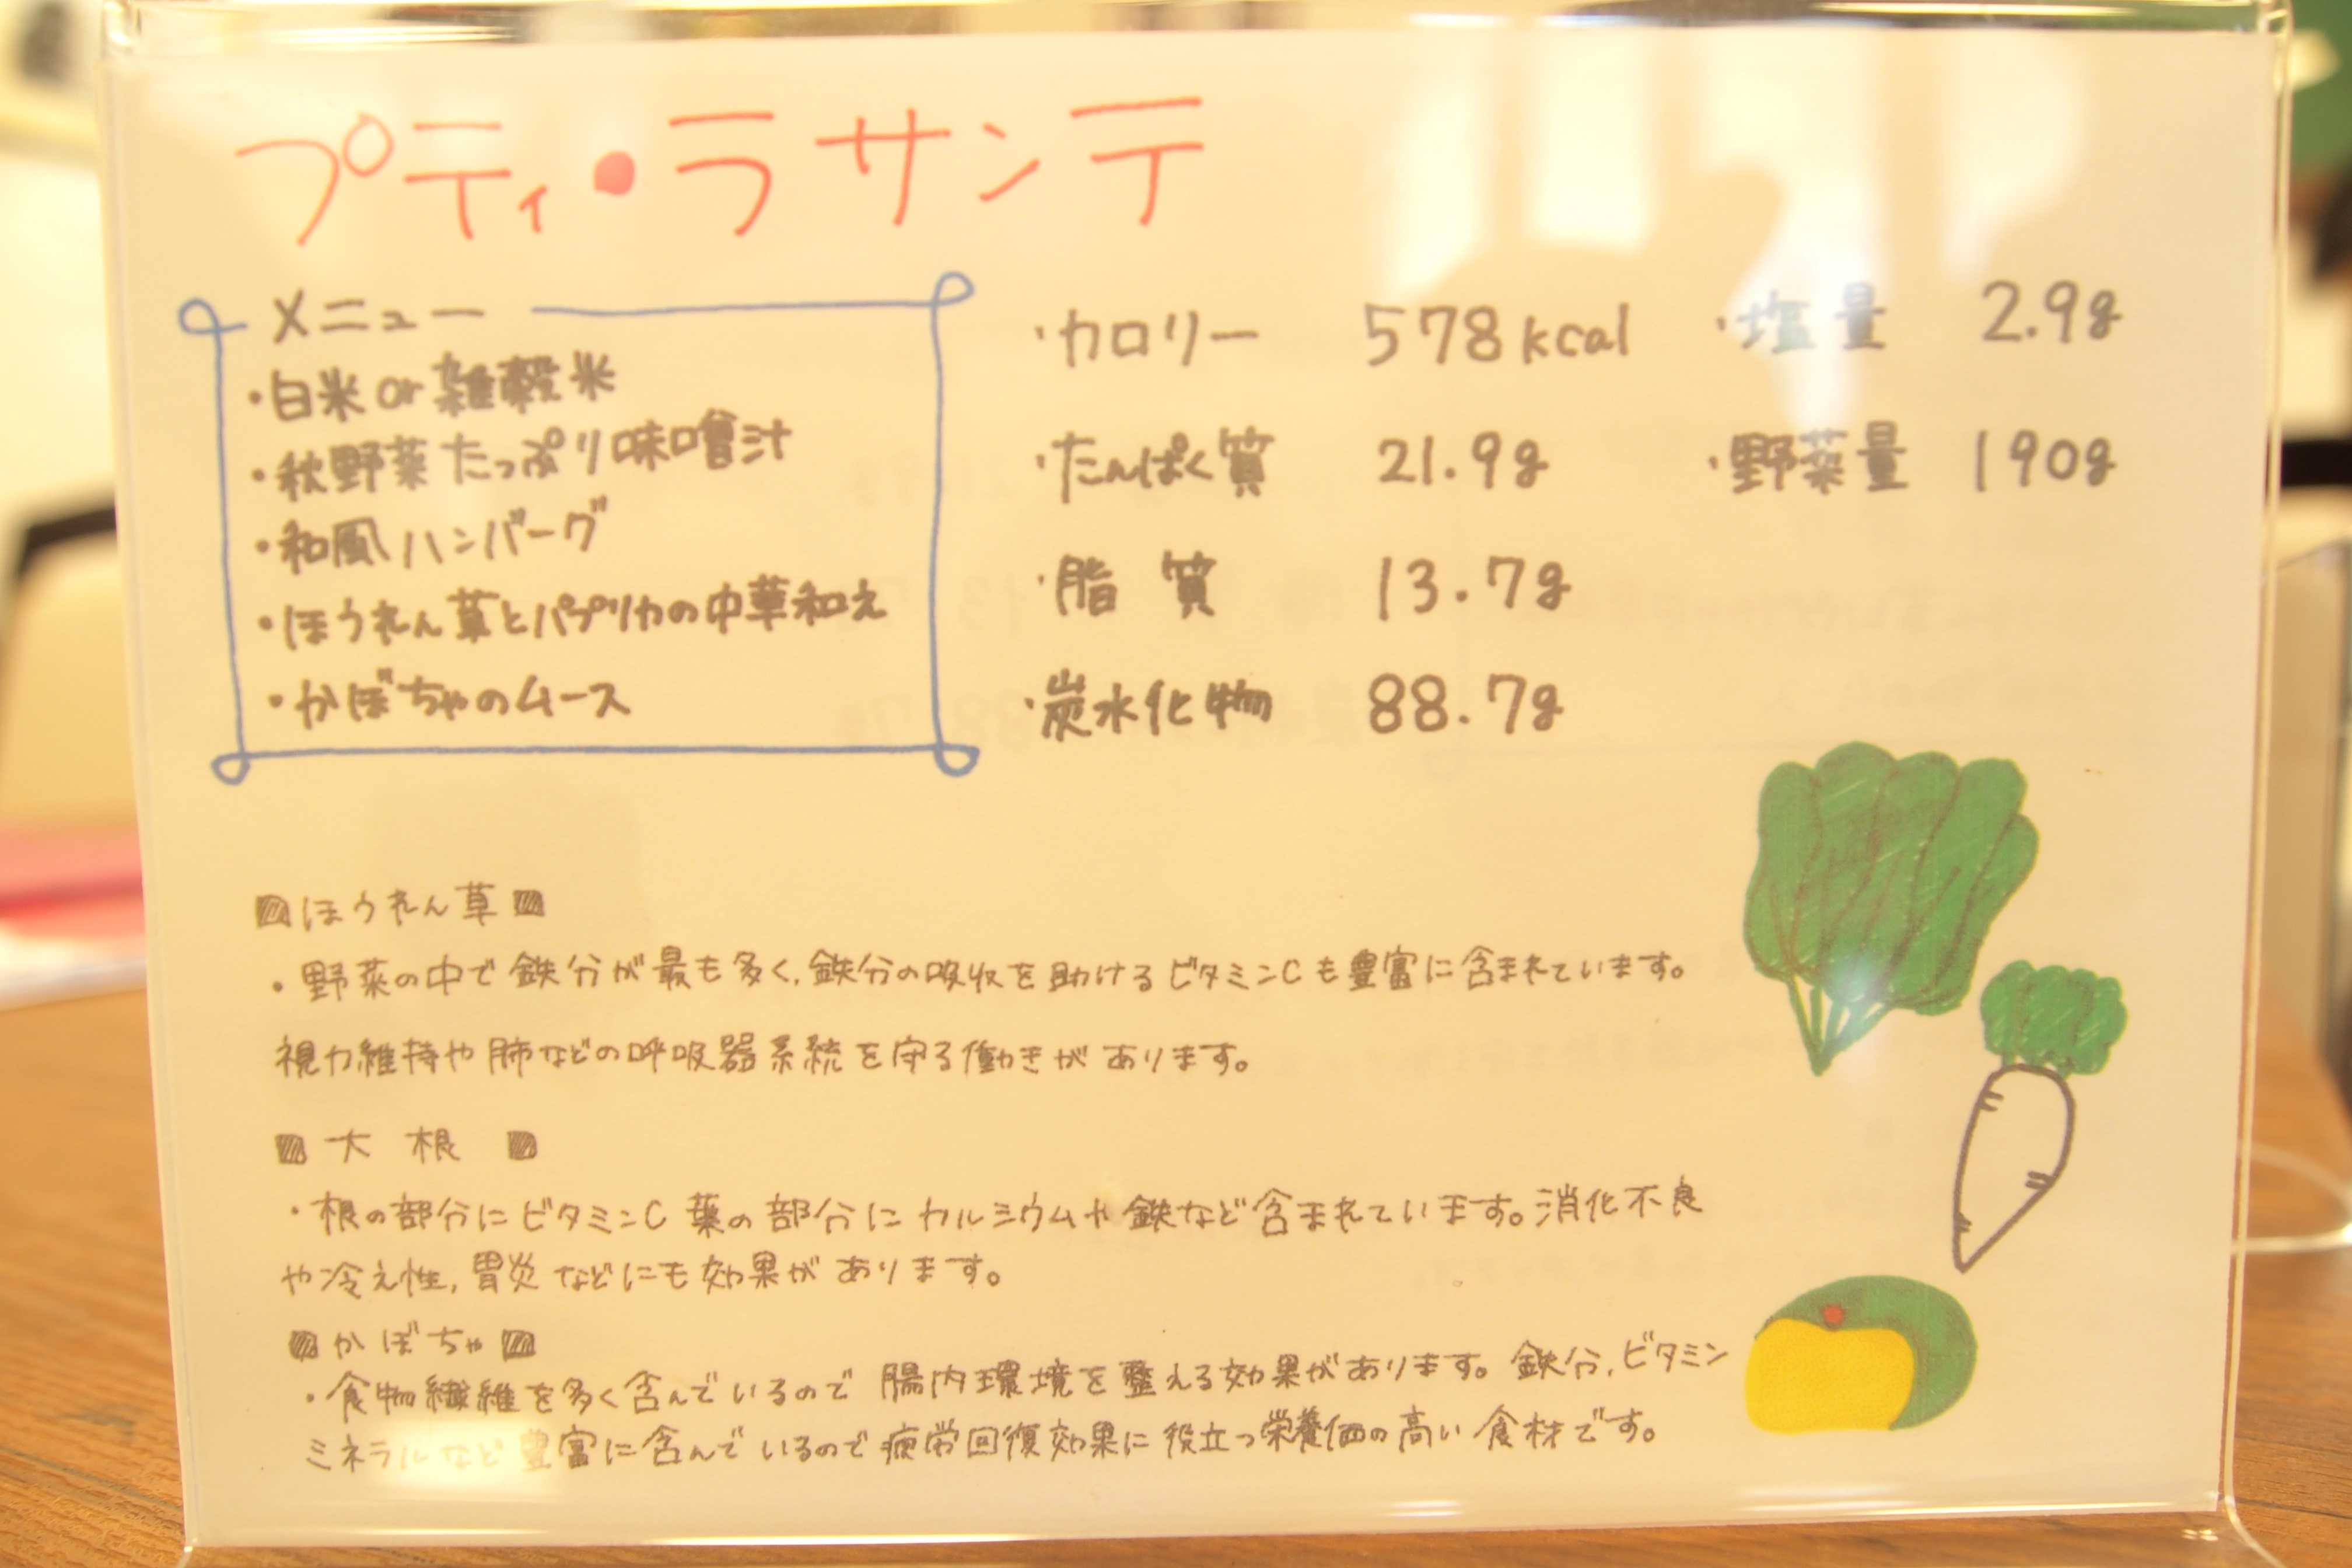 プティ・ラサンテ
メニュー
・白米or雑穀米
・秋野菜たっぷり味噌汁
・和風ハンバーグ
・ほうれん草とパプリカの中華和え
・かぼちゃのムース
・カロリー 578kcal
・たんぱく質 21.9g
・脂質 13.7g
・炭水化物 88.7g
・塩量 2.9g
・野菜量 190g
ほうれん草
・野菜の中で鉄分が最も多く、鉄分の吸収を助けるビタミンCも豊富に含まれています。
視力維持や肺などの呼吸器系統を守る働きがあります。
大根
・根の部分にビタミンC 葉の部分にカルシウムや鉄など含まれています。消化不良
や冷え性、胃炎などにも効果があります。
かぼちゃ
・食物繊維を多く含んでいるので腸内環境を整える効果があります。鉄分、ビタミン
ミネラルなど豊富に含んでいるので疲労回復効果に役立つ栄養価の高い食材です。